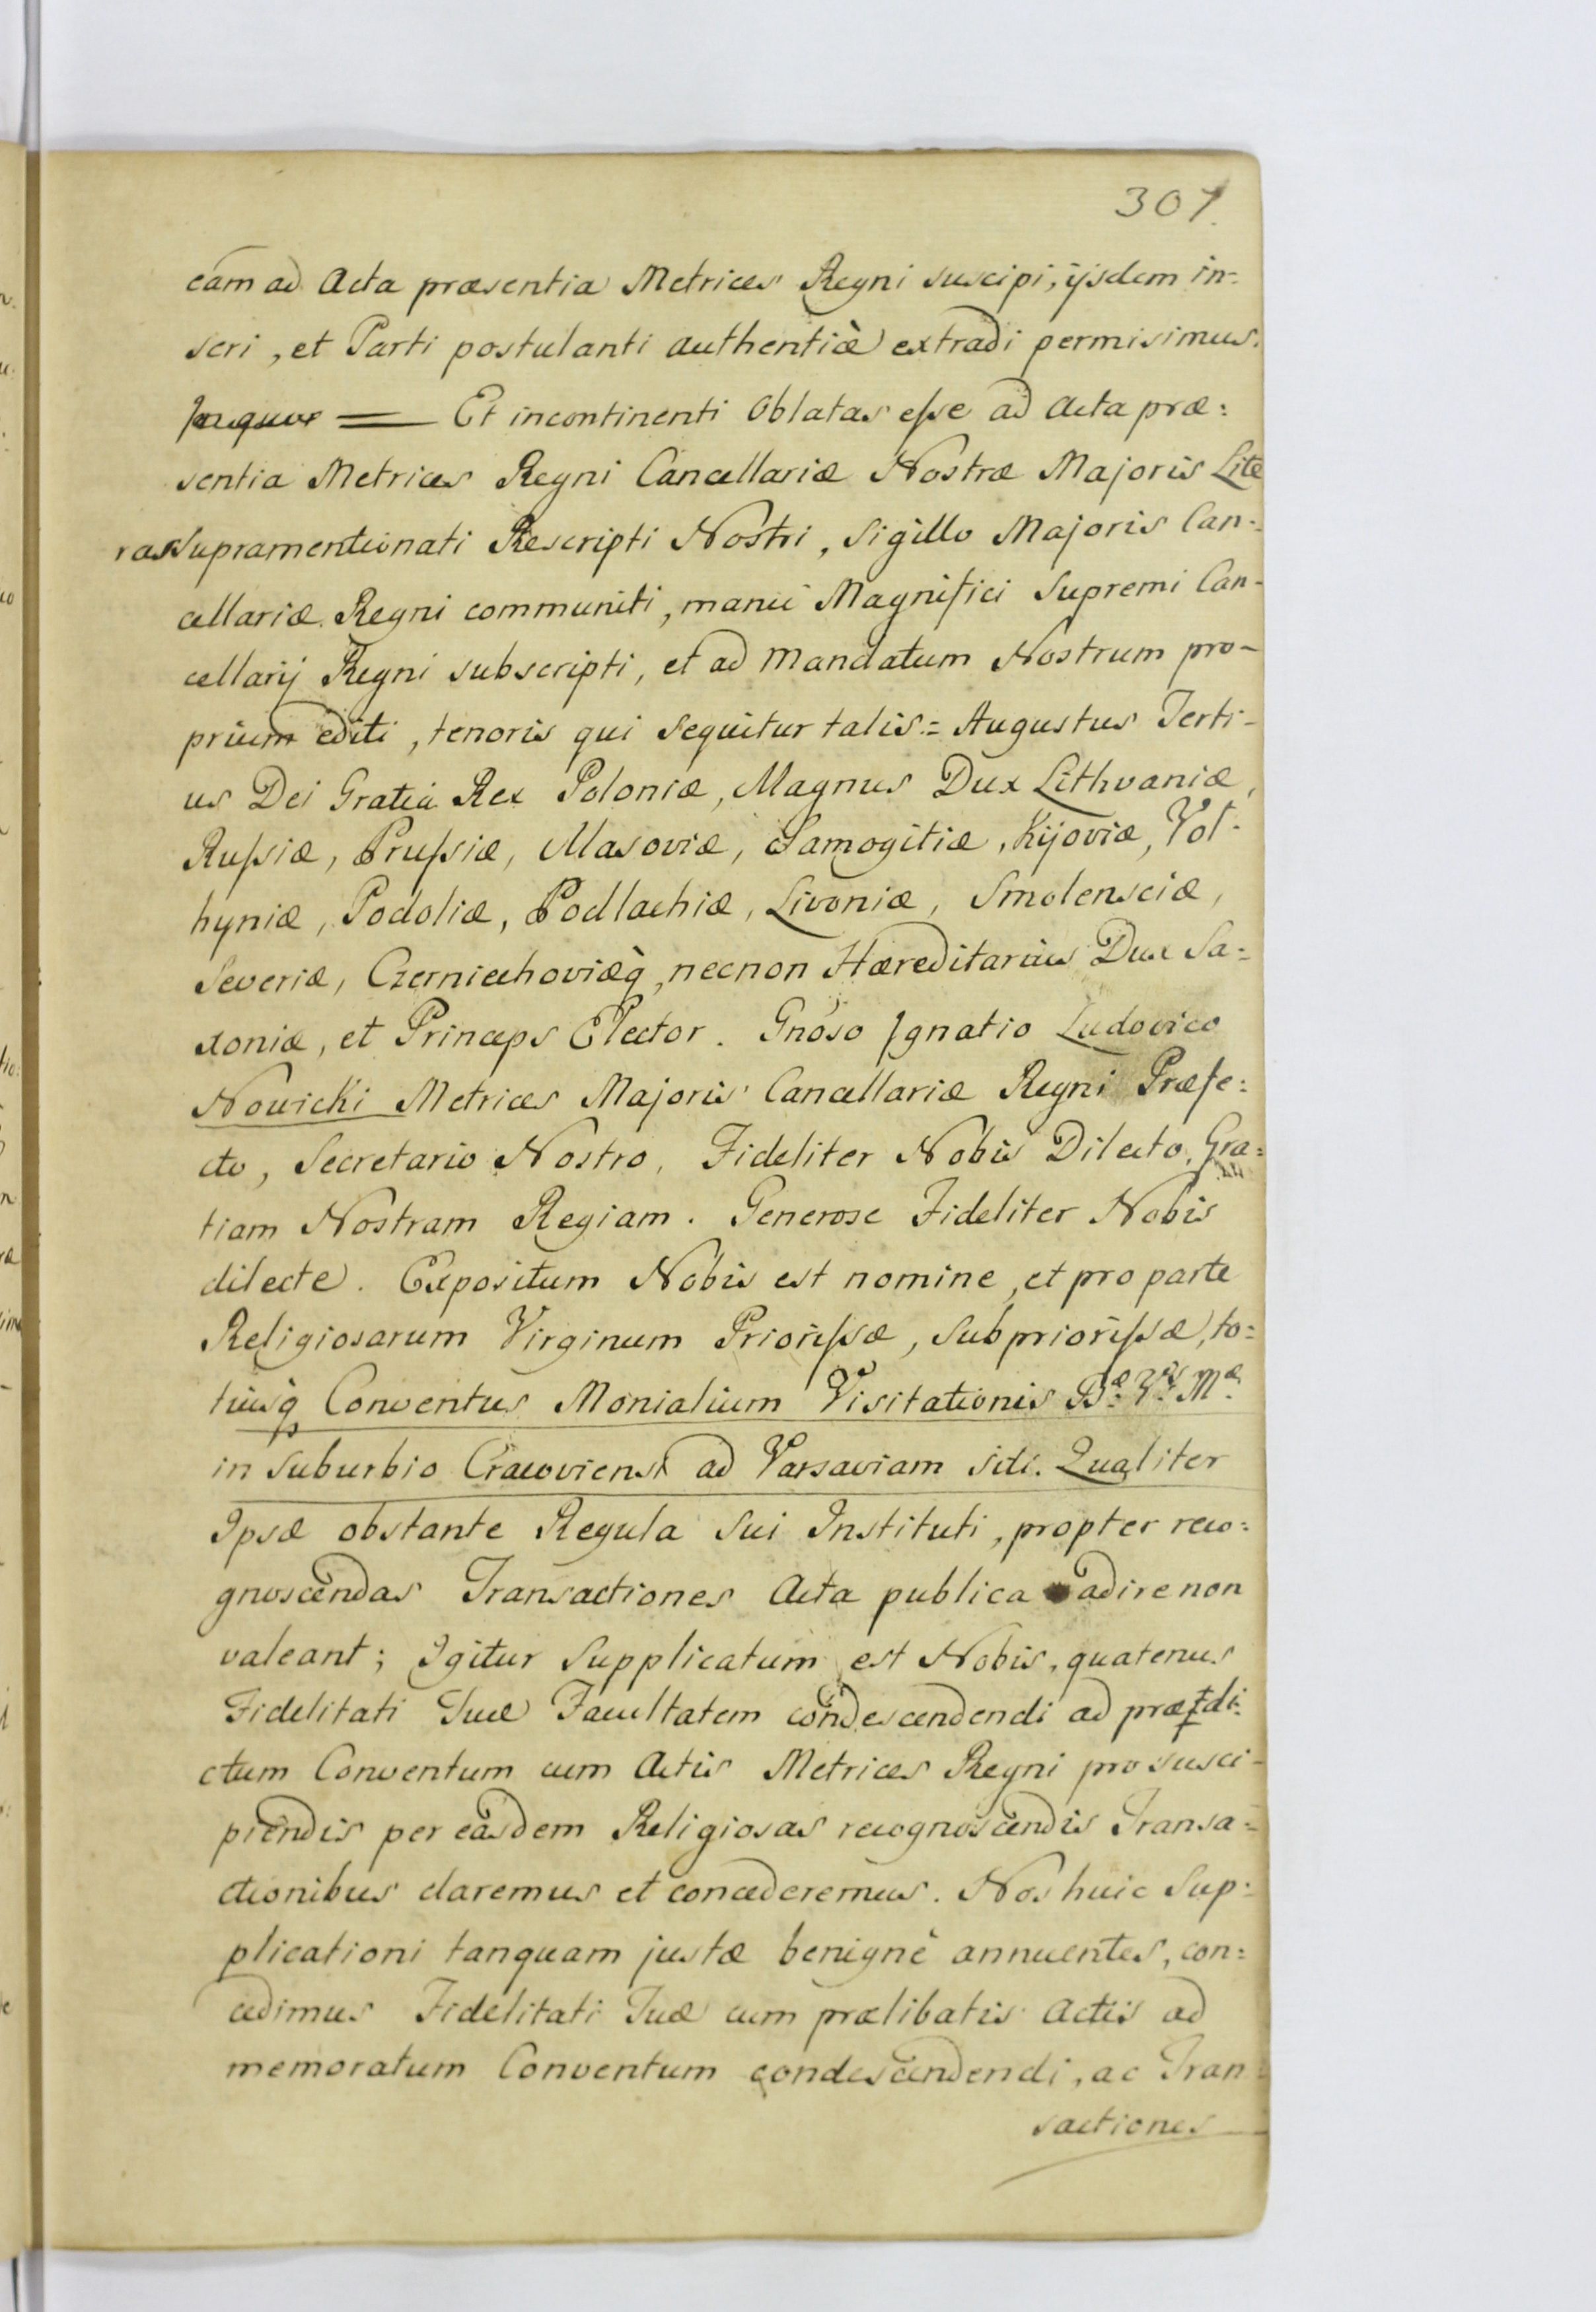 307.
eam ad Acta præsentia Metrices Regni suscipi, ijsdem in=
seri, et Parti postulanti authenticè extradi permisimus.
Et incontinenti Oblatas esse ad Acta præ=
sentia Metrices Regni Cancellariæ Nostræ Majoris Lite
ras Supramentionati Rescripti Nostri, Sigillo Majoris Can=
cellariæ Regni communiti, manu Magnifici Supremi Can-
cellarij Regni subscripti, et ad Mandatum Nostrum pro-
prium editi, tenoris qui Sequitur talis = Augustus Terti-
us Dei Gratiâ Rex Poloniæ, Magnus Dux Lithvaniæ,
Russiæ, Prussiæ, Masoviæ, Samogitiæ, Kijoviæ, Vol-
hyniæ, Podoliæ, Podlachiæ, Livoniæ, Smolensciæ,
Severiæ, Czerniechoviæq̀, necnon Hæreditarius Dux Sa=
xoniæ, et Princeps Elector. Gnoso Ignatio Ludovico
Nowicki Metrices Majoris Cancellariæ Regni Præfe=
cto, Secretario Nostro, Fideliter Nobis Dilecto, Gra=
tiam Nostram Regiam. Generose Fideliter Nobis
dilecte. Expositum Nobis est nomine, et pro parte
Religiosarum Virginum Priorissæ, Subpriorissæ, to=
tiusq Conventus Monialium Visitationis Bæ Vis Mæ
in Suburbio Cracoviensi ad Varsaviam siti. Qualiter
Ipsæ obstante Regula Sui Instituti, propter reco=
gnoscendas Transactiones Acta publica adire non
valeant; Igitur Supplicatum est Nobis, quatenus
Fidelitati Tuæ Facultatem condescendendi ad prædi=
ctum Conventum cum Actis Metrices Regni pro susci-
piendis per easdem Religiosas recognoscendis Transa=
ctionibus daremus et concederemus. Nos huic Sup=
plicationi tanquam justæ benignè annuentes, con=
cedimus Fidelitati Tuæ cum prælibatis Actis ad
memoratum Conventum condescendendi, ac Tran=
sactiones